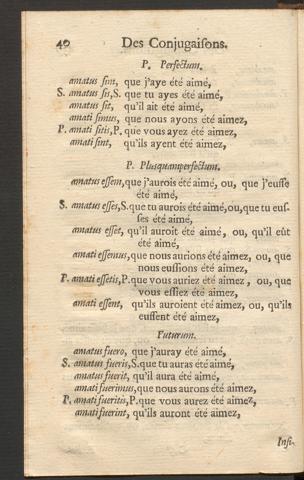 40 Des Conjugaiſons.
P. Perfectum.
amatus ſim, que j'aye été aimé,
S. amatus ſis, S. que tu ayes été aimé,
amatus ſit, qu'il ait été aimé,
amati ſimus, que nous ayons été aimez,
P. amati ſitis, P. que vous ayez été aimez,
amati ſint, qu'ils ayent été aimez,
P. Plusquamperfectum.
amatus eſſem, que j'aurois été aimé, ou, que j'euſſe
été aimé,
S. amatus eſſes, S. que tu aurois été aimé, ou, que tu euſ-
ſes été aimé,
amatus eſſet, qu'il auroit été aimé, ou, qu'il eût
été aimé,
amati eſſemus, que nous aurions été aimez, ou, que
nous euſſions été aimez,
P. amati eſſetis, P. que vous auriez été aimez, ou, que
vous eſſiez été aimez,
amati eſſent, qu'ils auroient été aimez, ou, qu'ils
euſſent été aimez,
Futurum.
amatus fuero, que j'auray été aimé,
S. amatus fueris, S. que tu auras été aimé,
amatus fuerit, qu'il aura été aimé,
amati fuerimus, que nous aurons été aimez,
P. amati fueritis, P. que vous aurez été aimez,
amati fuerint, qu'ils auront été aimez,
Infi-